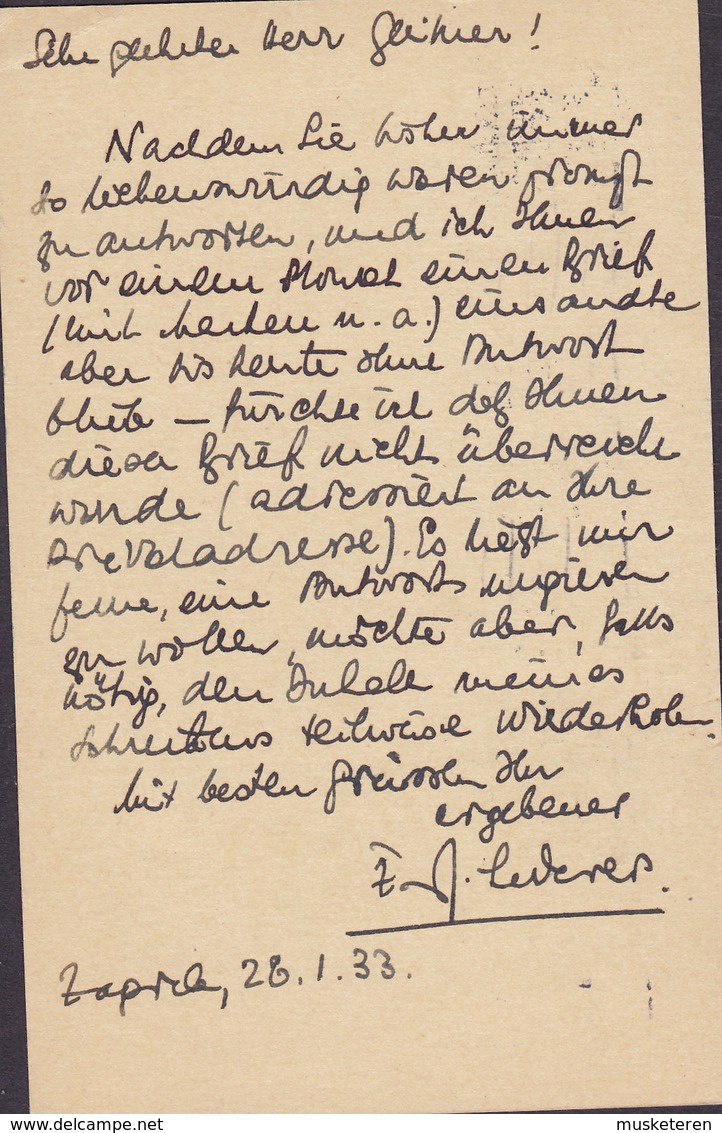 Sehr geehrter Herr
Nachdem Sie bisher immer
so liebenswürdig waren prompt
zu antworten, und ich Ihnen
vor einem Monat einen Brief
(mit Marken u. a.) einsandte
aber bis heute ohne Antwort
blieb – fürchte ich daß Ihnen
dieser Brief nicht überreicht
wurde (adressiert an Ihre
Privatadresse). Es liegt mir
ferne, eine Antwort urgieren
zu wollen, möchte aber, falls
nötig, den Inhalt meines
Schreibens teilweise wiederholen.
Mit besten Grüssen Ihr
ergebener
Lederer.
Zagreb, 28.1.33.
musketeren